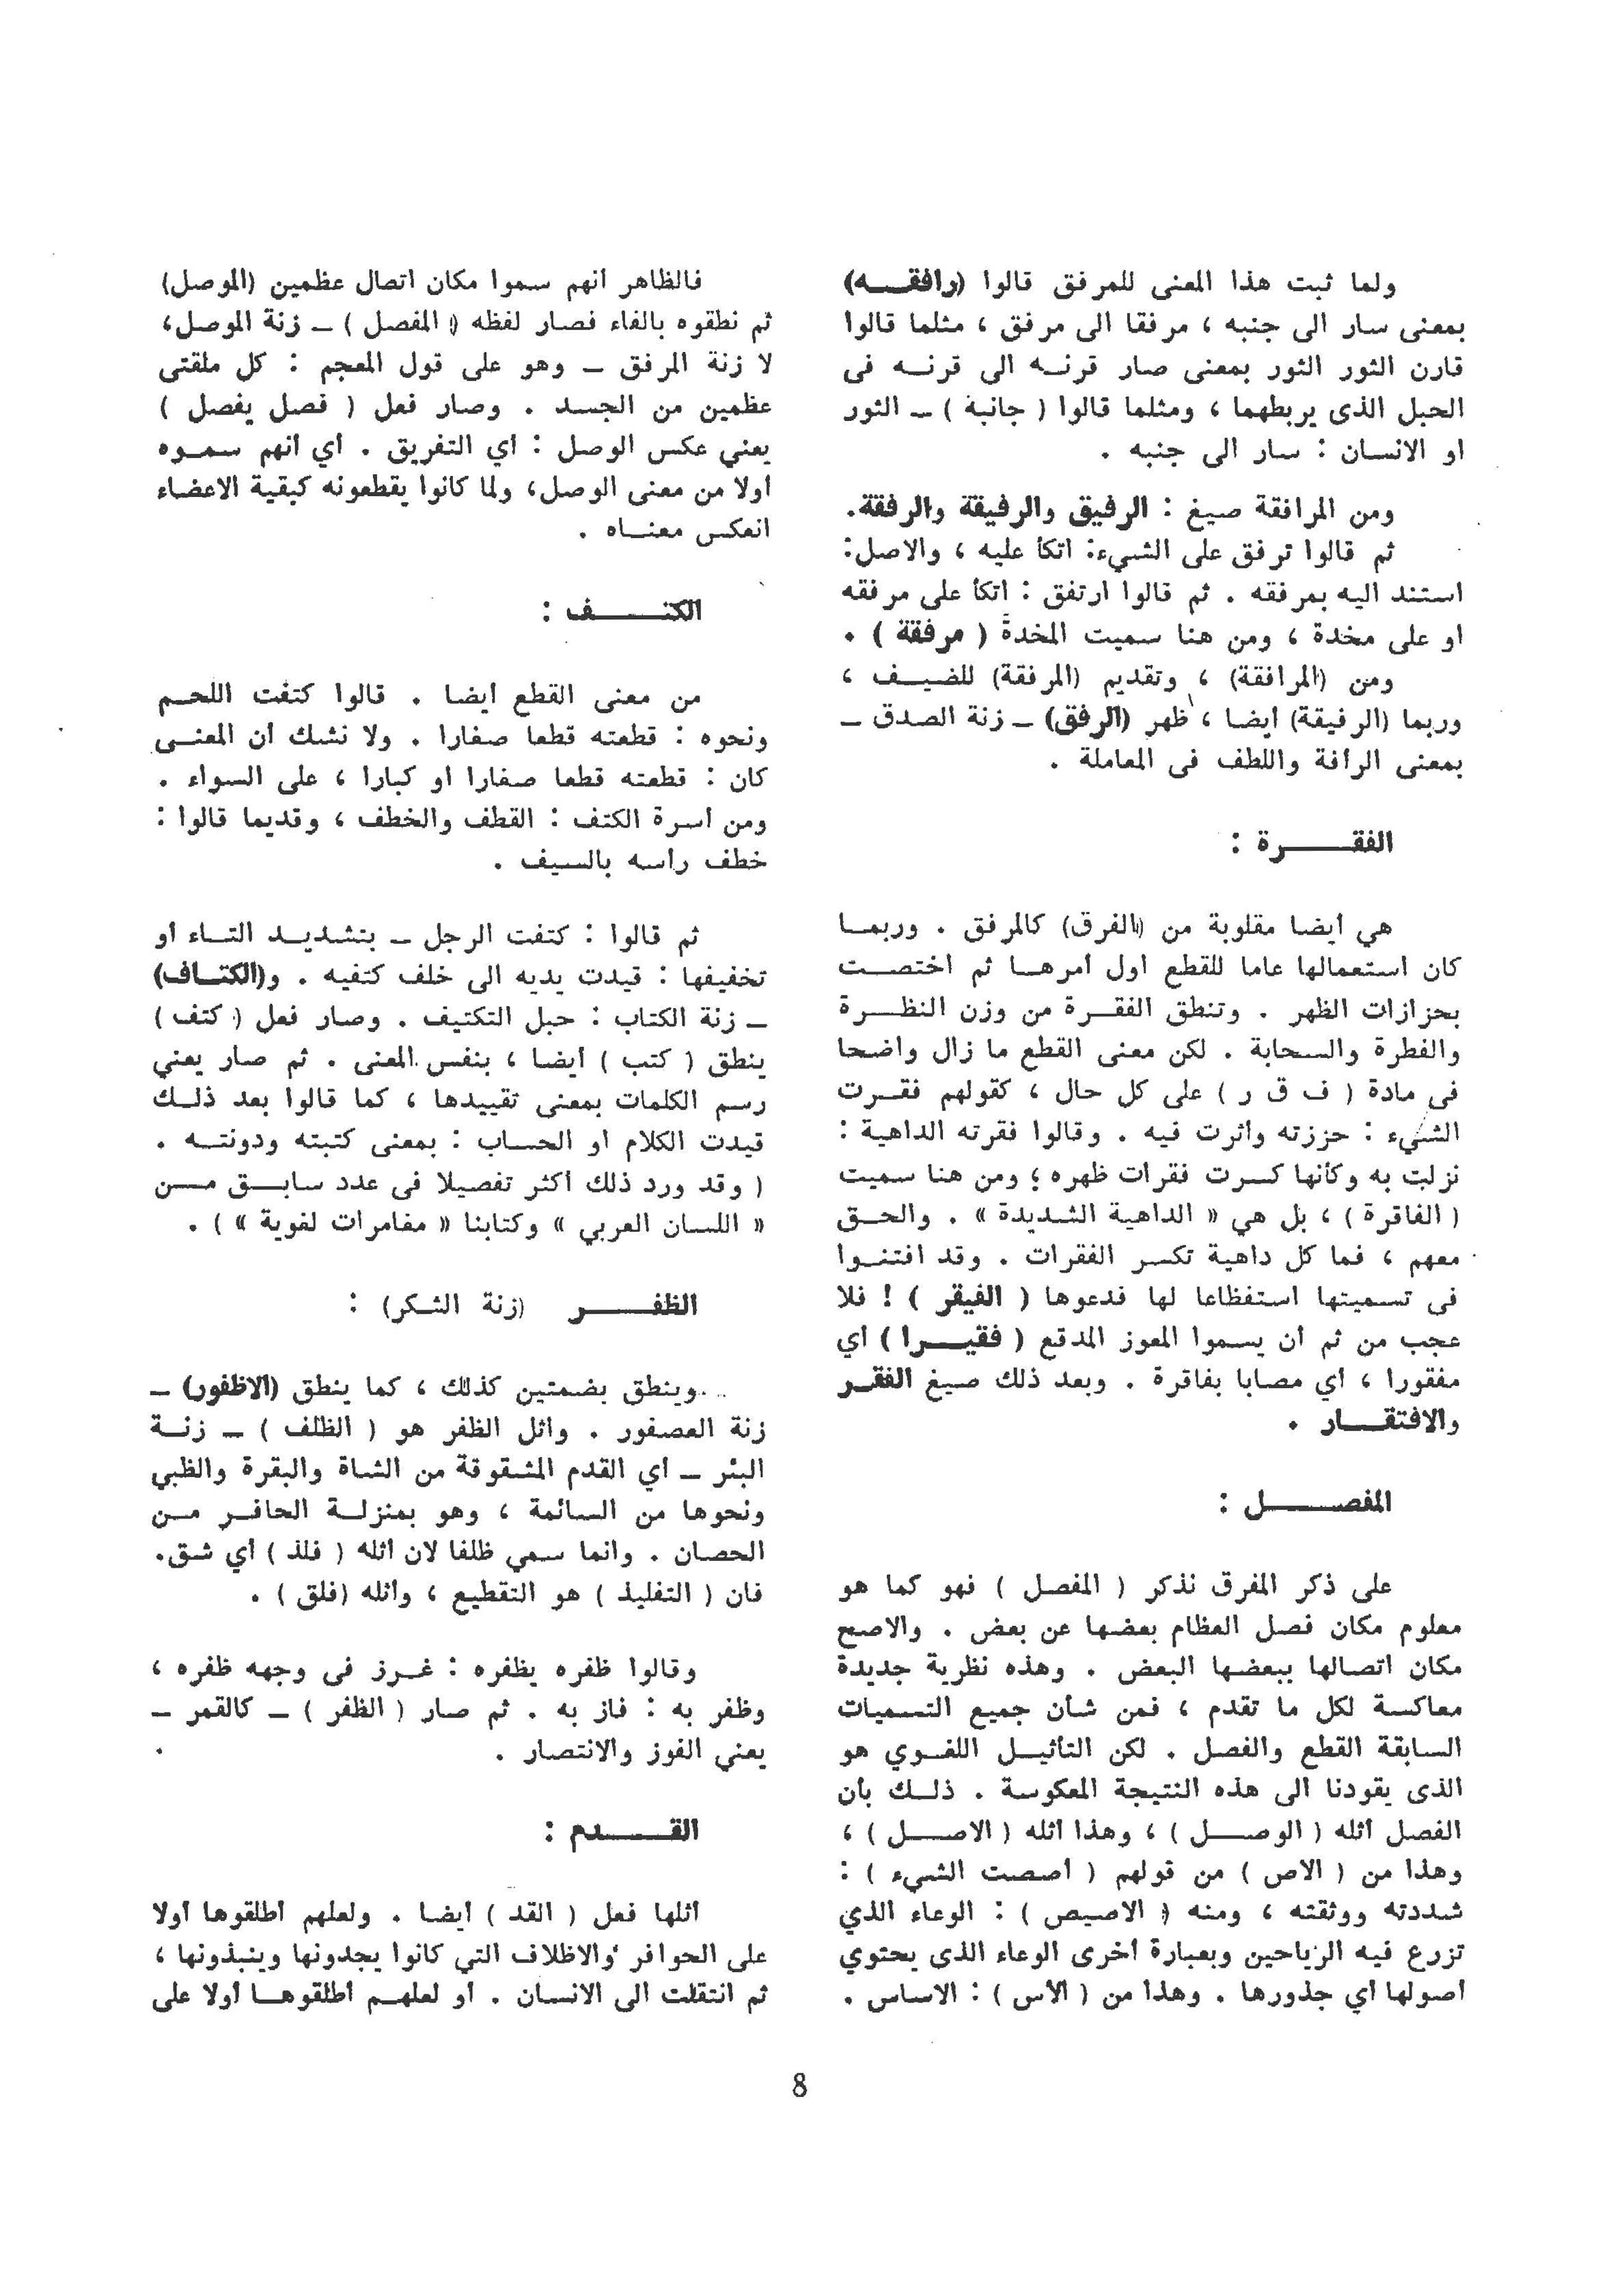 ولما ثبت هذا المعنى للمرفق قالوا (رافقـــه)
بمعنى سار الى جنبه ، مرفقا الى مرفق ، مثلما قالوا
قارن الثور الثور بمعنى صار قرنـه الى قرنـه فى
الحبل الذى يربطهما ، ومثلما قالوا ( جانبة ) ــ الثور
او الانسان : سار الى جنبه .
ومن المرافقة صيغ : الرفيق والرفيقة والرفقة.
ثم قالوا ترفق على الشيء: اتكأ عليه ، والاصل:
استند اليه بمرفقه . ثم قالوا ارتفق : اتكأ على مرفقه
او على مخدة ، ومن هنا سميت المخدة ( مرفقة ) .
ومن (المرافقة) ، وتقديم (المرفقة) للضيـف ،
وربما (الرفيقة) أيضا ، ظهر (الرفق) ــ زنة الصدق ــ
بمعنى الرأفة واللطف فى المعاملة .
الفقـــــرة :
هي أيضا مقلوبة من (الفرق) كالمرفق . وربمـا
كان استعمالها عاما للقطع اول أمرهـا ثم اختصـت
بحزازات الظهر . وتنطق الفقـرة من وزن النظـرة
والفطرة والسحابة . لكن معنى القطع ما زال واضحا
فى مادة ( ف ق ر ) على كل حال ، كقولهم فقـرت
الشيء : حززته وأثرت فيه . وقالوا فقرته الداهية :
نزلت به وكأنها كسرت فقرات ظهره ؛ ومن هنا سميت
( الفاقرة ) ، بل هي « الداهية الشديدة » . والحـق
معهم ، فما كل داهية تكسر الفقرات . وقد افتنـوا
فى تسميتها استفظاعا لها فدعوها ( الفيقر ) ! فلا
عجب من ثم أن يسموا المعوز المدقع ( فقيـــرا ) أي
مفقورا ، أي مصابا بفاقرة . وبعد ذلك صيغ الفقـر
والافتقـــار .
المفصـــــل :
على ذكر المفرق نذكر ( المفصل ) فهو كما هو
معلوم مكان فصل العظام بعضها عن بعض . والاصح
مكان اتصالها ببعضها البعض . وهذه نظرية جديدة
معاكسة لكل ما تقدم ، فمن شأن جميع التسميات
السابقة القطع والفصل . لكن التأثيـل اللغـوي هو
الذى يقودنا الى هذه النتيجة المعكوسة . ذلـك بأن
الفصل أثله ( الوصــل ) ، وهذا أثله ( الاصــل ) ،
وهذا من ( الاص ) من قولهم ( أصصت الشيء ) :
شددته ووثقته ، ومنه ( الاصيص ) : الوعاء الذي
تزرع فيه الرياحين وبعبارة أخرى الوعاء الذى يحتوي
أصولها أي جذورها . وهذا من ( الأس ) : الاساس .
فالظاهر أنهم سموا مكان اتصال عظمين (الموصل)
ثم نطقوه بالفاء فصار لفظه ( المفصل ) ــ زنة الموصل،
لا زنة المرفق ــ وهو على قول المعجم : كل ملقتى
عظمين من الجسد . وصار فعل ( فصل يفصل )
يعني عكس الوصل : أي التفريق . أي أنهم سمـوه
أولا من معنى الوصل، ولما كانوا يقطعونه كبقية الاعضاء
انعكس معنـاه .
الكتـــــف :
من معنى القطع أيضا . قالوا كتفت اللحـم
ونحوه : قطعته قطعا صغارا . ولا نشك أن المعنـى
كان : قطعته قطعا صغارا او كبارا ، على السواء .
ومن أسرة الكتف : القطف والخطف ، وقديما قالوا :
خطف رأسه بالسيف .
ثم قالوا : كتفت الرجل ــ بتشديـد التـاء أو
تخفيفها : قيدت يديه الى خلف كتفيه . و(الكتـاف)
ــ زنة الكتاب : حبل التكتيف . وصار فعل ( كتف )
ينطق ( كتب ) أيضا ، بنفس المعنى . ثم صار يعني
رسم الكلمات بمعنى تقييدها ، كما قالوا بعد ذلـك
قيدت الكلام او الحسـاب : بمعنى كتبته ودونتـه .
( وقد ورد ذلك أكثر تفصيلا فى عدد سابـق مـن
« اللسان العربي » وكتابنا « مغامرات لغوية » ) .
الظفـــــر (زنة الشكر) :
وينطق بضمتين كذلك ، كما ينطق (الاظفور) ــ
زنة العصفور . وأثل الظفر هو ( الظلف ) ــ زنـة
البئر ــ أي القدم المشقوقة من الشاة والبقرة والظبي
ونحوها من السائمة ، وهو بمنزلـة الحافـر مـن
الحصان . وانما سمي ظلفا لان أثله ( فلذ ) أي شق.
فان ( التفليذ ) هو التقطيع ، وأثله (فلق ) .
وقالوا ظفره يظفره : غـرز فى وجهه ظفره ،
وظفر به : فاز به . ثم صار ( الظفر ) ــ كالقمر ــ
يعني الفوز والانتصار .
القـــــدم :
أثلها فعل ( القد ) أيضا . ولعلهم أطلقوها أولا
على الحوافر والاظلاف التي كانوا يجدونها وينبذونها ،
ثم انتقلت الى الانسان . أو لعلهـم أطلقوهـا أولا على
8